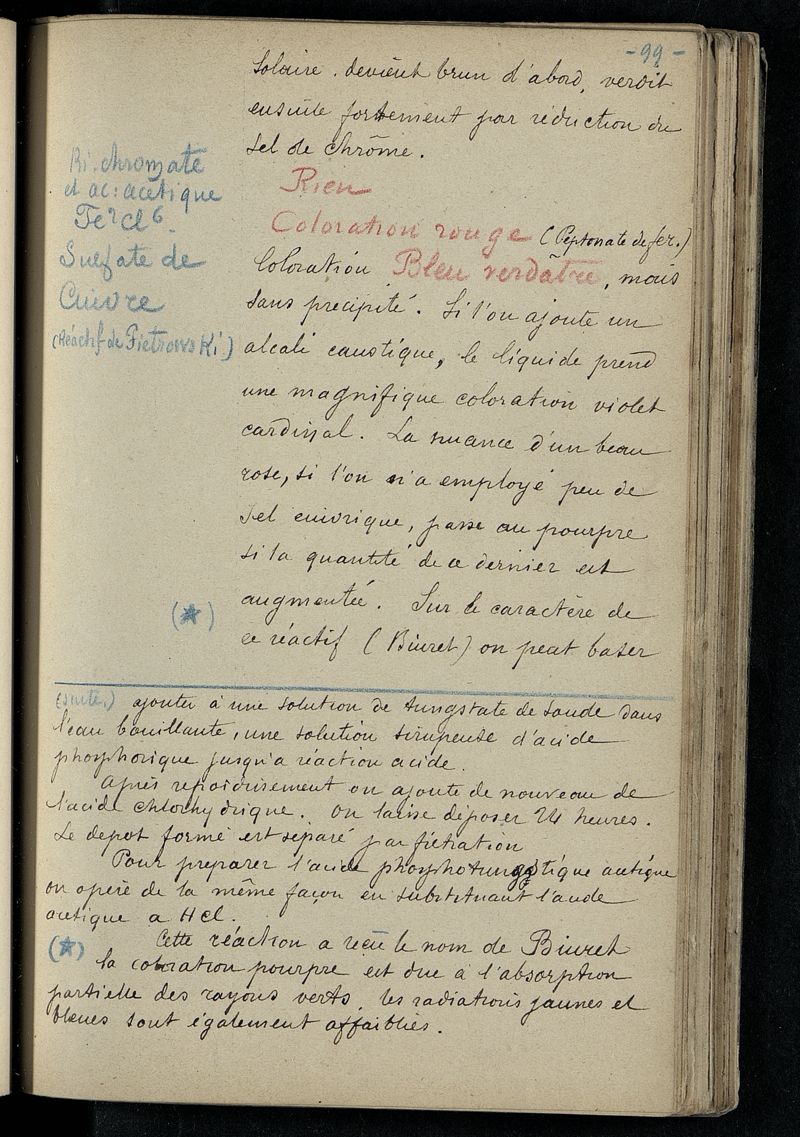 - 99 -
Solaire. devient brun d'abord, verdit
ensuite fortement par réduction du
sel de chrôme.
Bi-chromate
et ac: acétique
Rien
Fe² Cl⁶.
Coloration rouge (Peptonate de fer.)
Sulfate de
Cuivre
(Réactif de Pietrowski)
Coloration Bleu verdâtre, mais
sans precipité. Si l'on ajoute un
alcali caustique, le liquide prend
une magnifique coloration violet
cardinal. La nuance d'un beau
rose, si l'on n'a employé peu de
sel cuivrique, passe au pourpre
si la quantité de ce dernier est
augmentée. Sur le caractère de
(*)
ce réactif (Biuret) on peut baser
(suite.) ajouter à une solution de tungstate de soude dans
l'eau bouillante, une solution sirupeuse d'acide
phosphorique jusqu'a réaction acide.
Après refroidissement on ajoute de nouveau de
l'acide chlorhydrique. on laisse déposer 24 heures.
Le depot formé est separé par filtration
Pour preparer l'acide phosphotungstique acétique
on opère de la même façon en substituant l'acide
acétique a HCl.
(*) Cette réaction a reçu le nom de Biuret
la coloration pourpre est due à l'absorption
partielle des rayons verts, les radiations jaunes et
bleues sont également affaiblies.